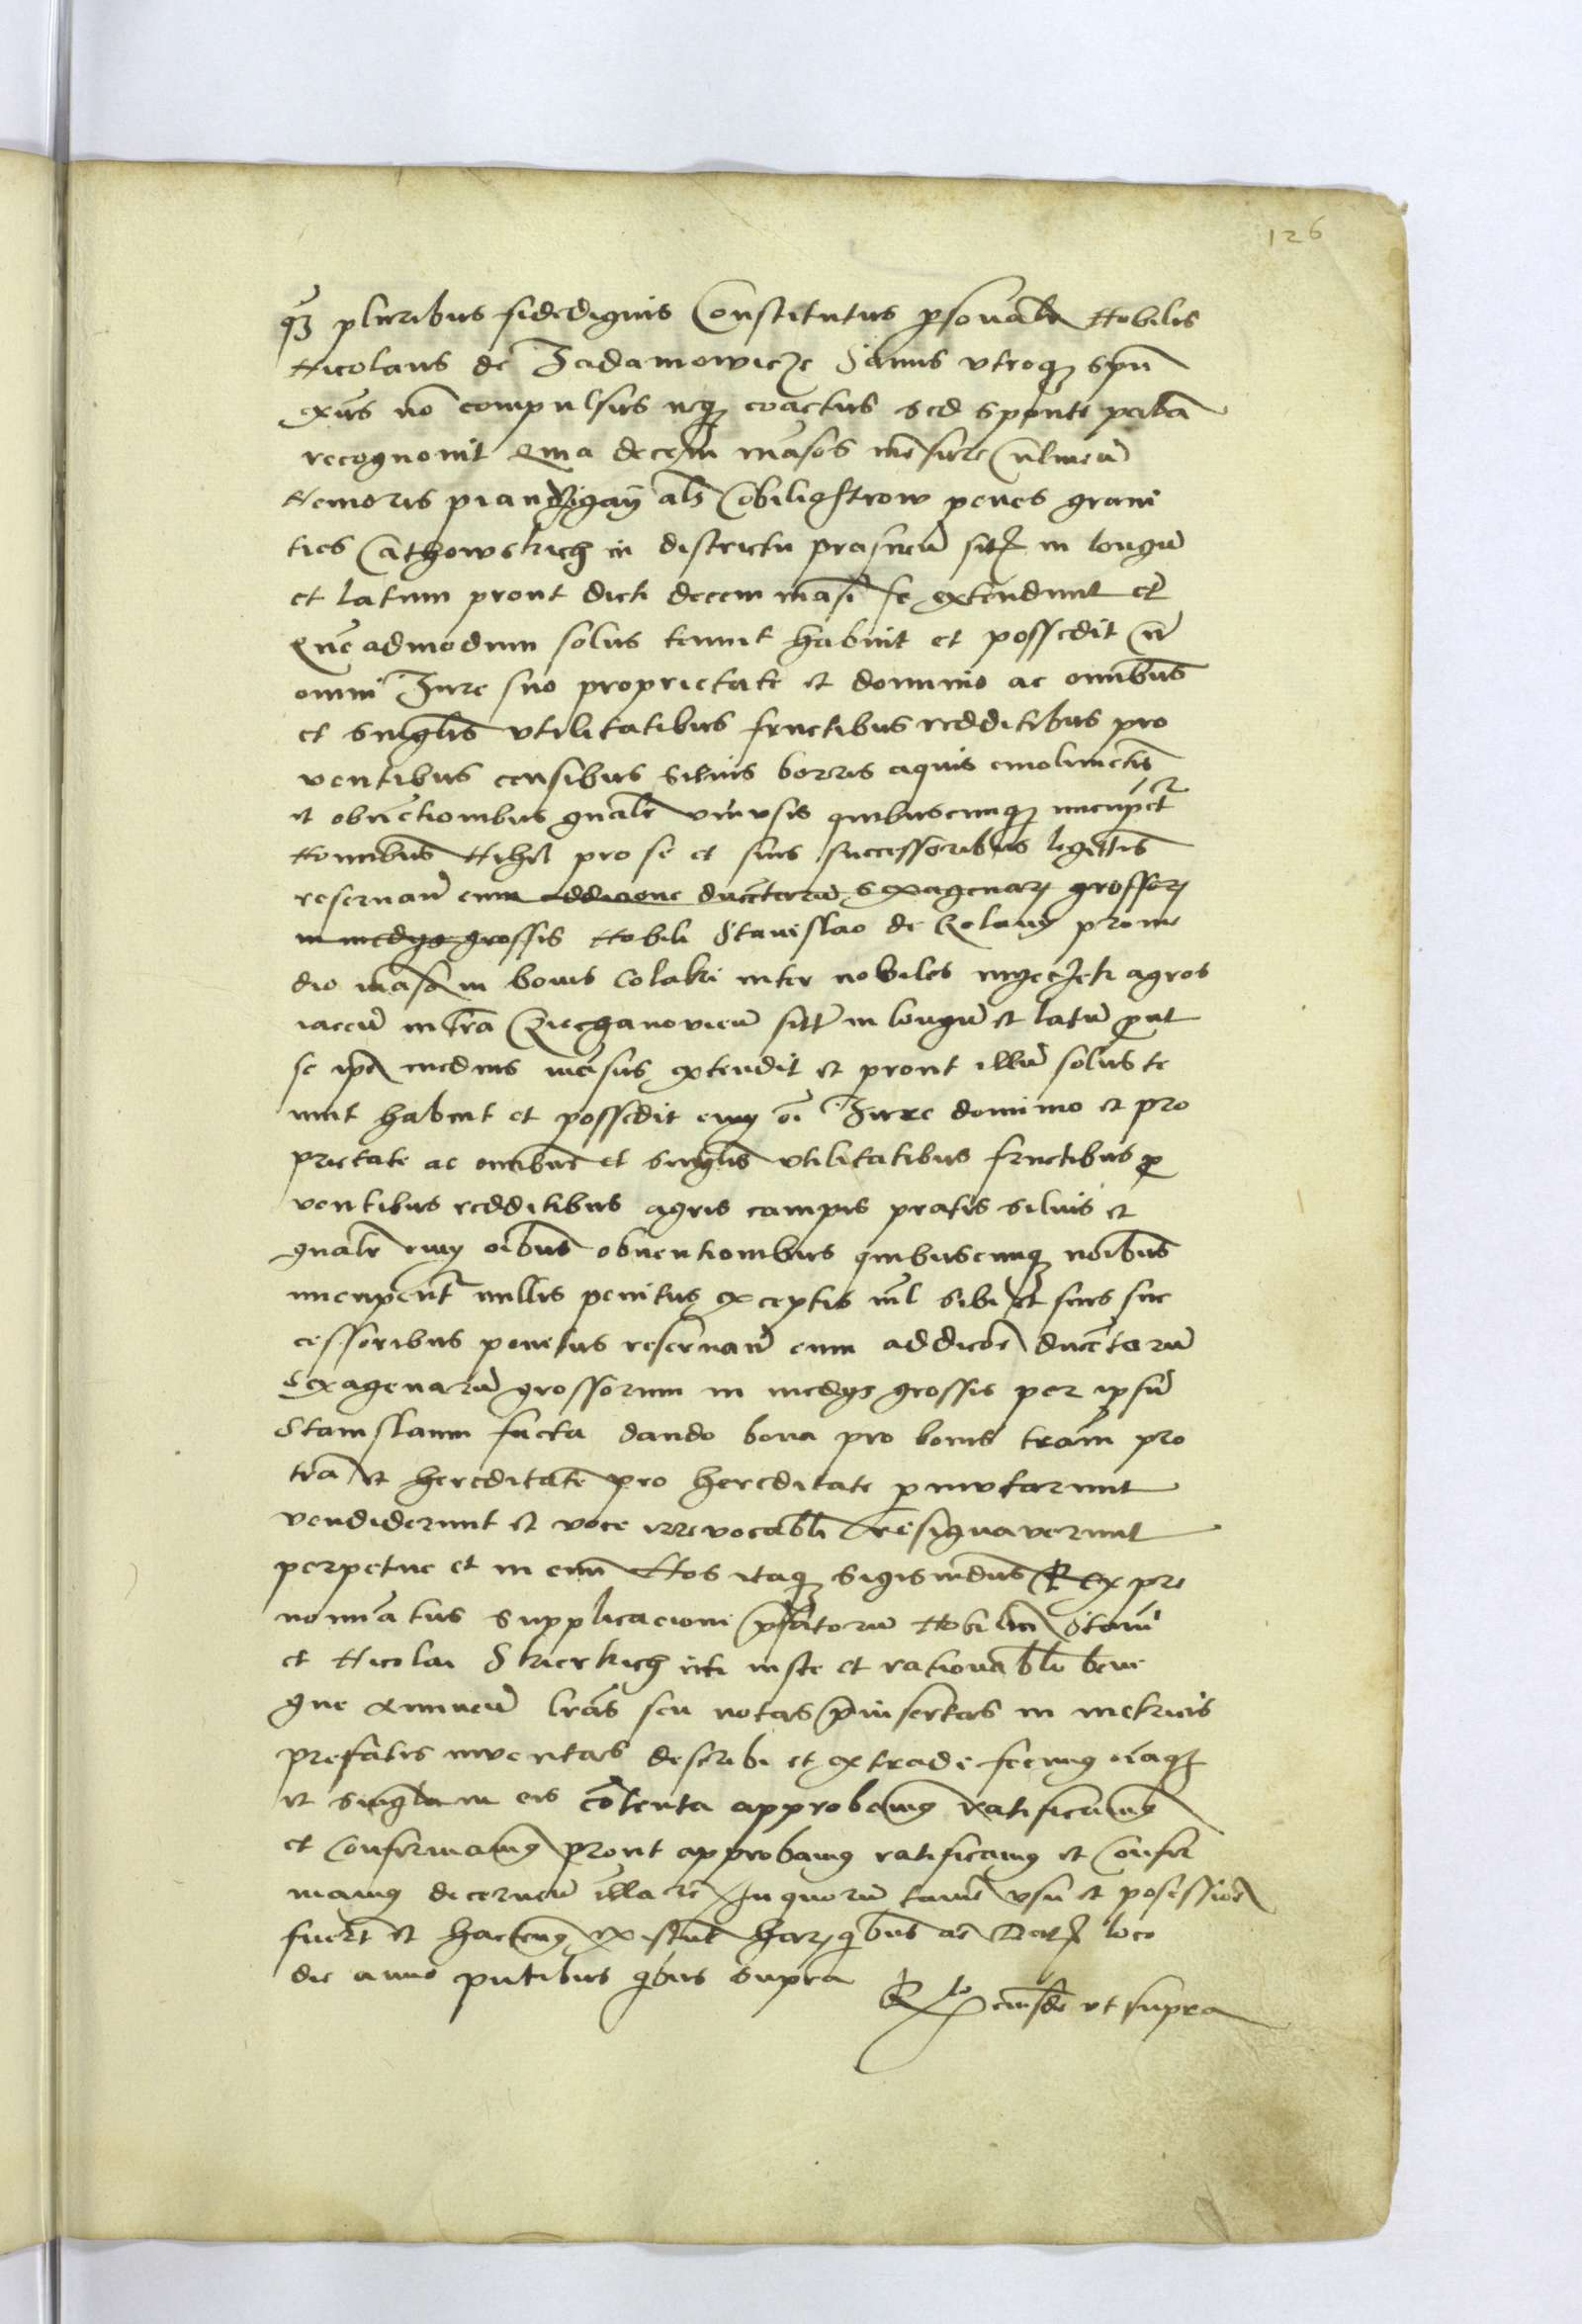 126
q3 pluribus fidedignis Constitutus psonalr Nobilis
Nicolaus de Zadamowicze Sanus utroq3 spu
exns no compulsus neq3 coactus sed sponte
recognovit Quia decem mansos mesure Culmen
Nemoris als penes grani
ties Cathowskich in districtu prasnen sitos in longu
et latum prout dicti decem mansi se extendunt et
Que admodum solus tenuit habuit et possedit cu
omni Iure suo proprietate et dominio ac omibus
et singlis utilitatibus fructibus redditibus pro
ventibus censibus silvis borris aquis emolumetis
et obvetionibus gnalr univsis quibuscunq3 nuncupetr
Nominibus Nihil pro se et suis successoribus legittis
reservan cum addicione ducetaru sexagenar grossor
in medys grossis Nobili Stanislao de Kolaky pro me
dio manso in bonis Colaki inter nobiles agros
iacen in tra Czieczanovien sitt in longu et latu put
se ipe medius mansus extendit et prout illu solus te
nuit habuit et possedit cum oi Iure dominio et pro
prietate ac omibus et singlis utilitatibus fructibus p
ventibus redditibus agris campis pratis silvis et
gnalr cum oibus obventionibus quibuscunq3 noibus
nuncupentr nullis penitus exceptis nil sibi et suis suc
cessoribus penitus reservan cum addicoe ducetaru
Sexagenaru grossorum in medys grossis per ipsu
Stanislaum facta dando bona pro bonis tram pro
tra et hereditate pro hereditate pmutarunt
vendiderunt et voce irrevocabli resignaverunt
perpetue et in evu Nos itaq3 Sigismdus Rex pre
nominatus supplicacioni pfatoru Nobiliu Stani
et Nicolai Skierkich uti iuste et rationabli beni
gne annuen lras seu notas pinsertas in metricis
prefatis inventas describi et extradi fecim9 oiaq3
et singla in eis cotenta approbavim9 ratificavim9
et confirmavim9 prout approbam9 ratificam9 et Confir
mam9 decernen illa re In quoru tame usu et posessioe
fuert et hacten9 existut har quibus ae Dat loco
die anno putibus qibus supra
Rto eiusde ut supra